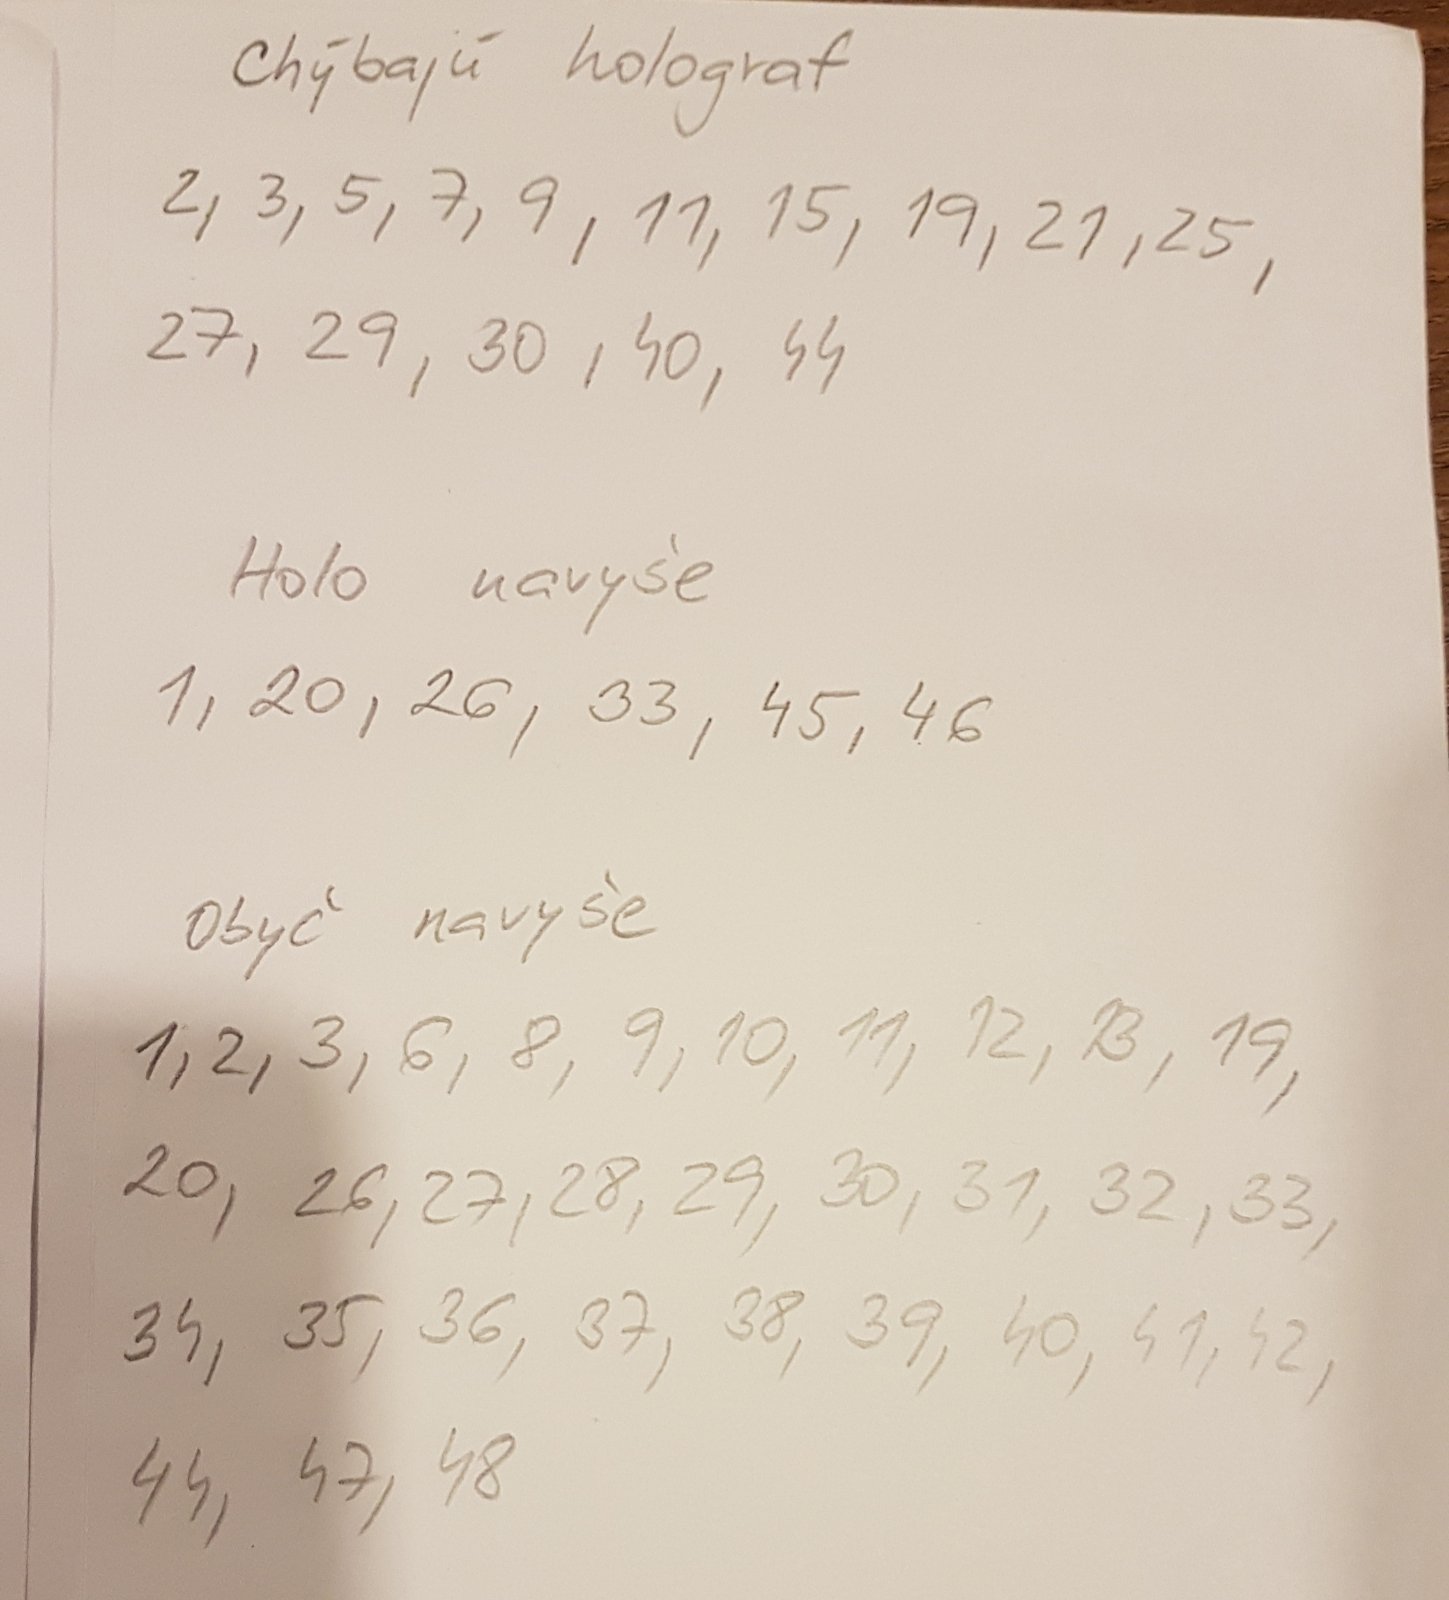 Chýbajú holograf
2, 3, 5, 7, 9, 11, 15, 19, 21, 25,
27, 29, 30, 40, 44
Holo navyše
1, 20, 26, 33, 45, 46
Obyč navyše
1, 2, 3, 6, 8, 9, 10, 11, 12, 13, 19,
20, 26, 27, 28, 29, 30, 31, 32, 33,
34, 35, 36, 37, 38, 39, 40, 41, 42,
44, 47, 48